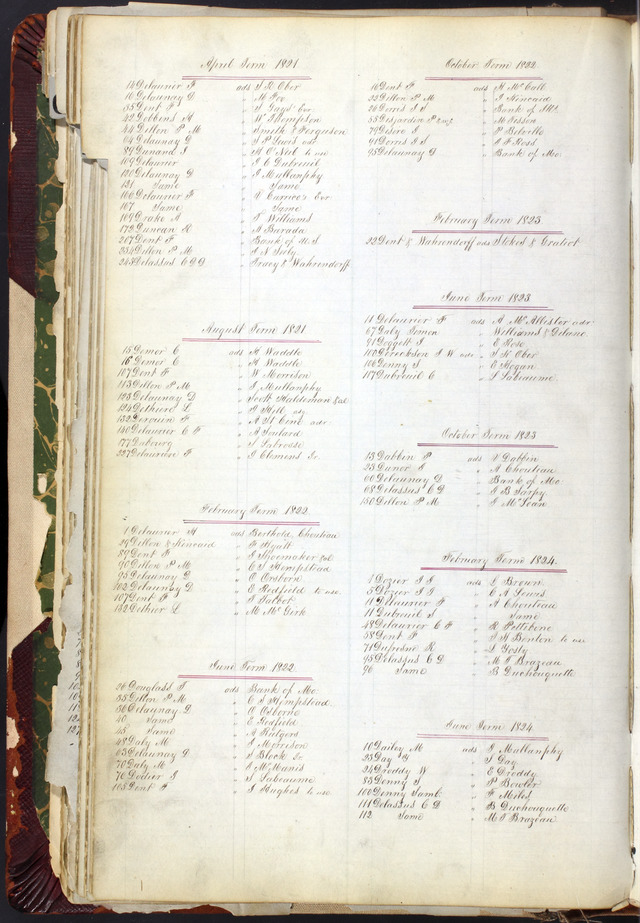 April Term 1821
14 Delaurier F ads J R Ober
16 Delaunay D " M Poe
35 Dent F " J Guys Exr
42 Dobbens H " W Thompson
44 Dillon P M " Smith & Ferguson
64 Delaunay D " J P Lewis adr
89 Dunand I " H O Neil to use
109 Delaurier " J C Dubreuil
130 Delaunay D " J Mullanphy
131 Same " Same
166 Delaurier F " F Carrico's Exr
167 Same " Same
169 Drake A " F Williams
172 Duncan R " A Barada
207 Dent F " Bank of U.S.
234 Dillon P M " J N Seely
243 Delassus C D D " Tracy & Wahrendorff
August Term 1821
15 Demer C ads H Waddle
16 Demer C " H Waddle
107 Dent F " W Morrison
113 Dillon P M " J Mullanphy
123 Delaunay D " Scott Haldeman &al
124 Dethiere L " J Hill adr
132 Derouin F " A St Cine adr
140 Delaurier C F " A Soulard
177 Dubourg " S Labrosse
227 Delauriere F " J Clemens Jr
February Term 1822
7 Delaurier H ads Berthold Chouteau
29 Dillon & Kincaid " F Hyatt
89 Dent F " J Shoemaker &al
90 Dillon P M " C S Hempstead
95 Delaunay D " O Osborn
102 Delaunay D " E Redfield to use
107 Dent F " F Talbot
132 Dethier L " M McGirk
June Term 1822
26 Douglass T ads Bank of Mo
35 Dillon P M " C S Hempstead
36 Delaunay D " O Osborne
40 Same " E Redfield
45 Same " A Rutgers
48 Daly M " J Morrison
63 Delaunay D " S Block Jr
70 Daly M " F McManis
76 Dodier I " S Labeaume
105 Dent F " J Hughes to use
October Term 1822
16 Dent F ads H McCall
22 Dillon P M " J Kincaird
26 Dorris J J " Bank of Mo
55 Desjardin P &ux " M Bisson
79 Didier I " P Belville
91 Dorris J J " J F Ross
95 Delaunay D " Bank of Mo.
February Term 1823
22 Dent & Wahrendorff ads Stokes & Gratiot
June Term 1823
11 Delaurier F ads A McAllister adr
67 Daly Simon " Williams & Delane
91 Doggett J " E Rose
100 Derickson J W adr " J R Ober
106 Denny J " E Hogan
117 Dubreuil C " S Labeaume
October Term 1823
13 Dabbin P ads V Dabbin
23 Dunor I " A Chouteau
60 Delaunay D " Bank of Mo
68 Delassus C D " J B Sarpy
150 Dillon P M " J McLean
February Term 1824.
1 Dozier J J ads L Brown
5 Dozier J J " E A Lewis
11 Delaurier F " A Chouteau
11 Dubreuil S " Same
48 Delaurier C F " R Pettibone
58 Dent F " T H Benton to use
71 Dufresne R " S Gosly
95 Delassus C D " M F Brazeau
96 Same " B Duchouquette
June Term 1824
10 Dailey M ads J Mullanphy
23 Day G " J Day
24 Droddy W " E Droddy
83 Denny J " P Bowler
100 Denny Saml. " F Miles
111 Delassus C D " B Duchouquette
112 Same " M F Brazeau